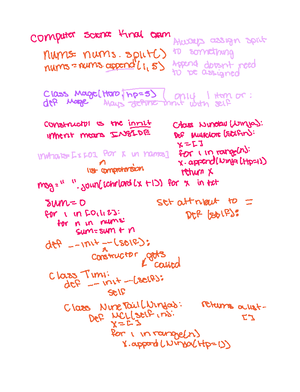 Computer Science Final Exam
Always assign split
to something
nums = nums.split()
nums = nums append(1,5)
Append doesnt need
to be assigned
Class Mage(Hero, hp=5):
only 1 item or:
def Mage
Always define init with self
Constructor is the init
inherit means INSIDE
Class NineTail(Ninja):
Def Multiclone(self,n):
x=[]
for i in range(n):
x.append(Ninja(Hp=1))
return x
for x in names]
list comprehension
msg = " ".join(chr(ord(x+1)) for x in txt
Sum=0
for i in [0,1,2]:
for n in nums:
sum=sum+n
Set attribut to =
Def (self):
def __init__(self):
constructor gets
called
Class Timi:
def __init__(self):
self
Class NineTail(Ninja):
returns a list-
[]
Def MCL(self,n):
x=[]
for i in range(n)
x.append(Ninja(Hp=1))